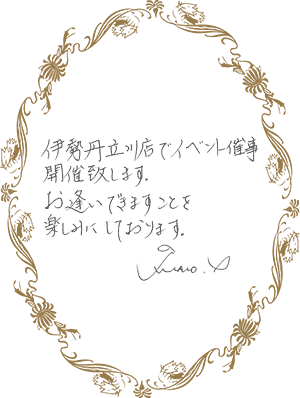 伊勢丹立川店でイベント催事
開催致します.
お逢いできますことを
楽しみにしております.